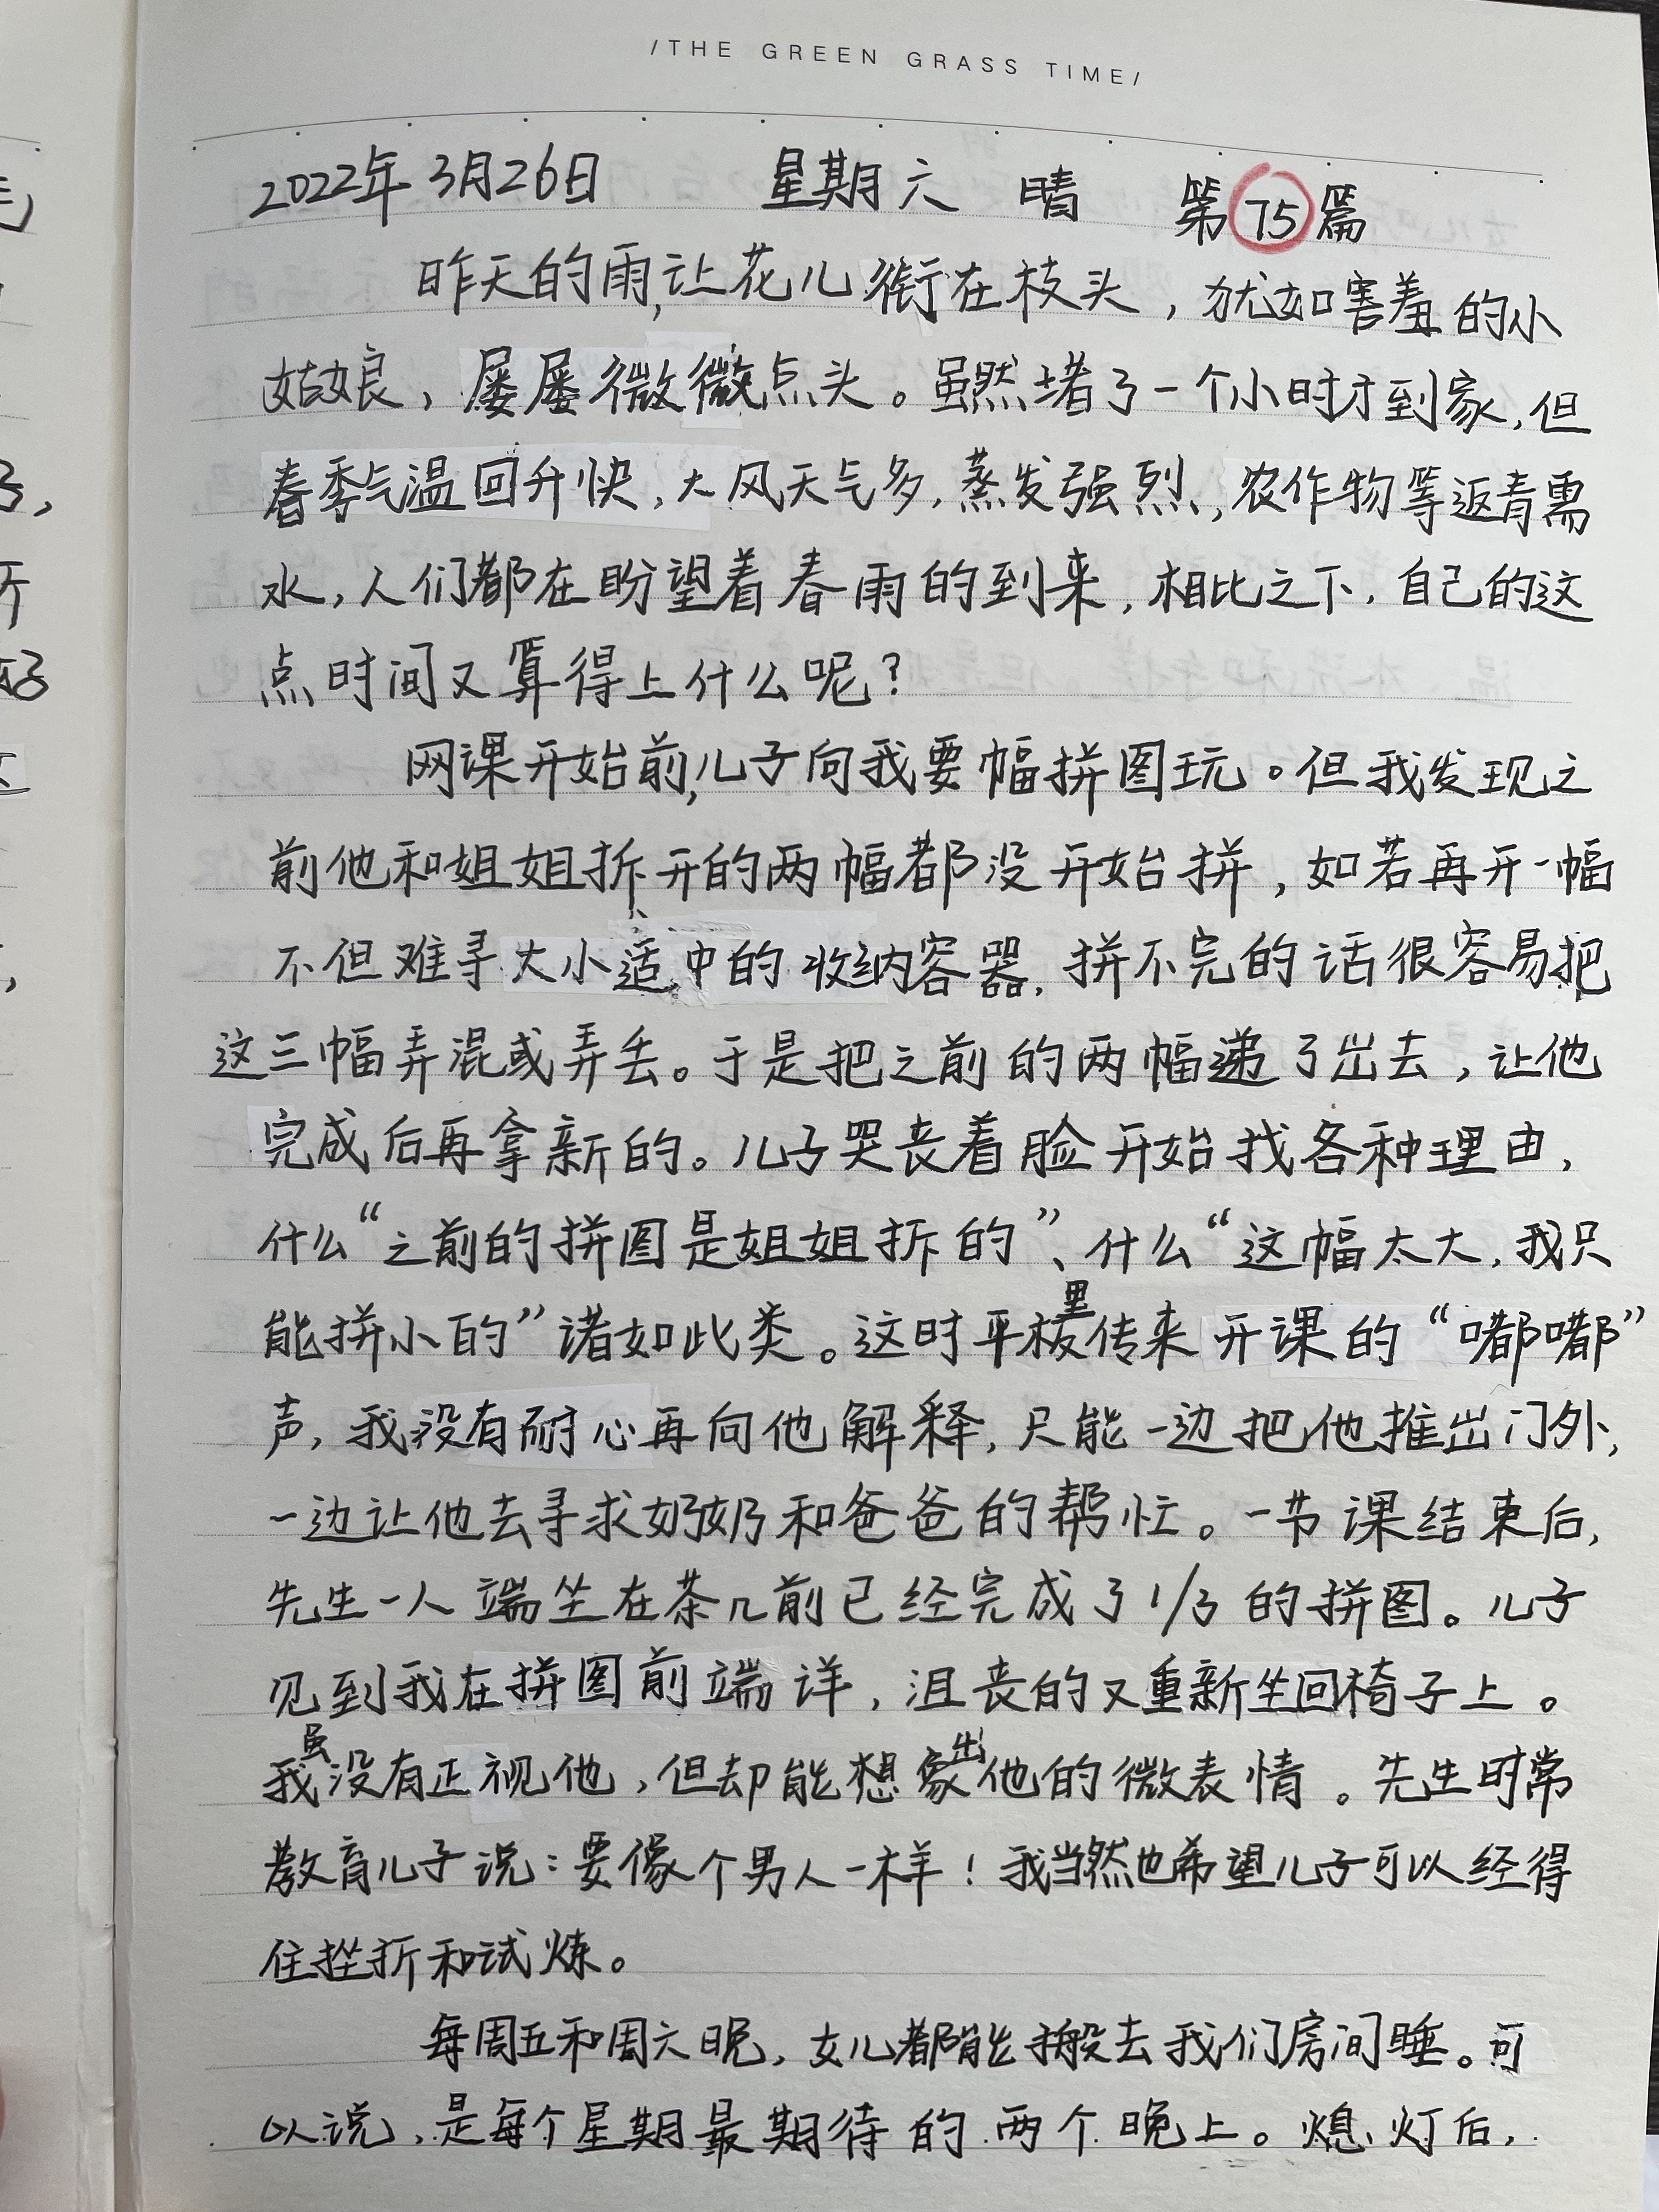 /THE GREEN GRASS TIME/
2022年3月26日 星期六 晴 第75篇
昨天的雨,让花儿衔在枝头，犹如害羞的小
姑娘，屡屡微微点头。虽然堵了一个小时才到家，但
春季气温回升快，大风天气多，蒸发强烈，农作物等返青需
水，人们都在盼望着春雨的到来，相比之下，自己的这
点时间又算得上什么呢？
网课开始前,儿子向我要幅拼图玩。但我发现之
前他和姐姐拆开的两幅都没开始拼，如若再开一幅
不但难寻大小适中的收纳容器，拼不完的话很容易把
这三幅弄混或弄丢。于是把之前的两幅递了出去，让他
完成后再拿新的。儿子哭丧着脸开始找各种理由，
什么“之前的拼图是姐姐拆的”、什么“这幅太大，我只
能拼小的”诸如此类。这时平板里传来开课的“嘟嘟”
声，我没有耐心再向他解释，只能一边把他推出门外，
一边让他去寻求奶奶和爸爸的帮忙。一节课结束后，
先生一人端坐在茶几前已经完成了1/3的拼图。儿子
见到我在拼图前端详，沮丧的又重新坐回椅子上。
我虽没有正视他，但却能想象出他的微表情。先生时常
教育儿子说：要像个男人一样！我当然也希望儿子可以经得
住挫折和试炼。
每周五和周六晚，女儿都能搬去我们房间睡。可
以说，是每个星期最期待的两个晚上。熄灯后，